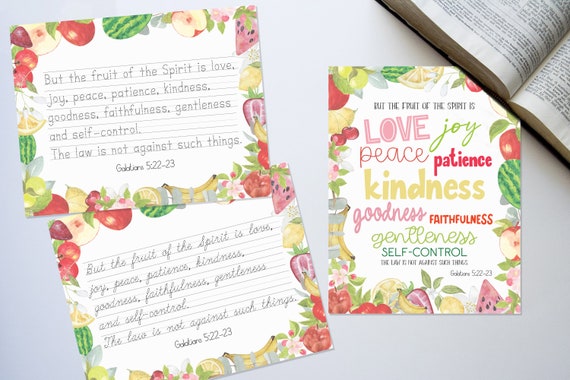 But the fruit of the Spirit is love,
joy, peace, patience, kindness,
goodness, faithfulness, gentleness
and self-control.
The law is not against such things.
Galatians 5:22-23
But the fruit of the Spirit is love,
joy, peace, patience, kindness,
goodness, faithfulness, gentleness
and self-control.
The law is not against such things.
Galatians 5:22-23
BUT THE FRUIT OF THE SPIRIT IS
LOVE joy
peace patience
kindness
goodness FAITHFULNESS
gentleness
SELF-CONTROL
THE LAW IS NOT AGAINST SUCH THINGS
Galatians 5:22-23